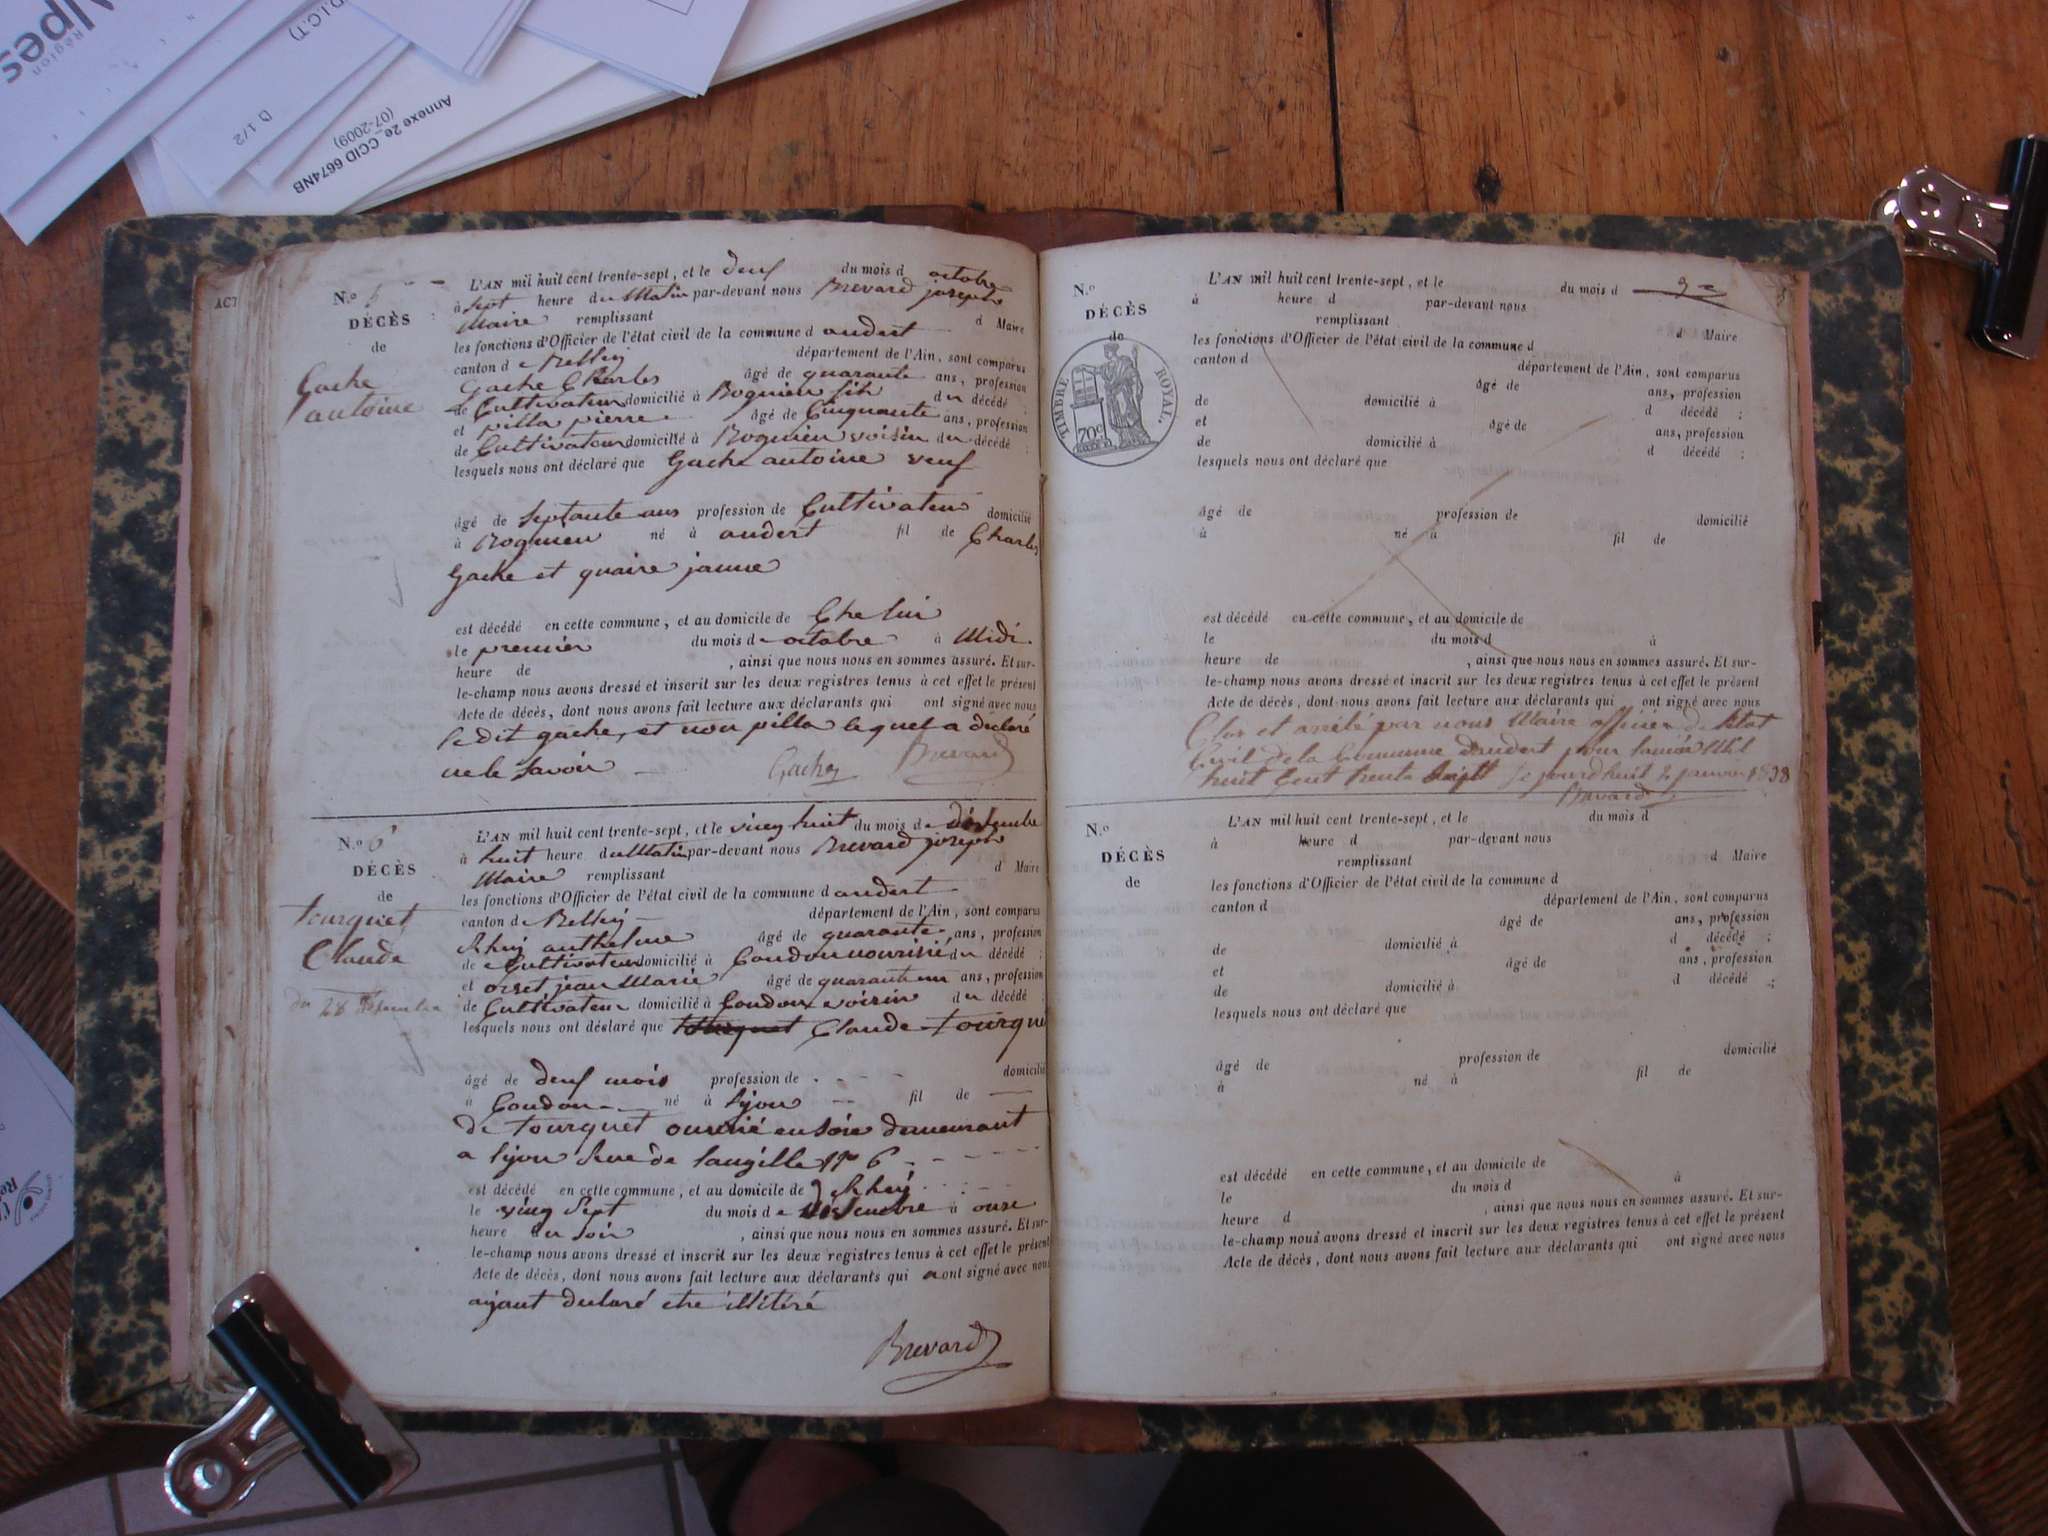 Alpes
Région
D.I.C.T)
D 1/2
Annexe 2e_CCID 6674NB
(07-2009)
ACT
N.o 5
DÉCÈS
de
Gache
antoine
L'AN mil huit cent trente-sept, et le deux du mois d octobre
à sept heure du Matin par-devant nous Brevard joseph
Maire remplissant d Maire
les fonctions d'Officier de l'état civil de la commune d andert
canton de Belley département de l'Ain, sont comparus
Gache Charles âgé de quarante ans, profession
de Cultivateur domicilié à Rognieu fils du décédé ;
et pilla pierre âgé de Cinquante ans, profession
de Cultivateur domicilié à Rognieu voisin du décédé ;
lesquels nous ont déclaré que Gache antoine veuf
âgé de septante ans profession de Cultivateur domicilié
à Rognieu né à andert fil de Charles
Gache et quaire janne
est décédé en cette commune, et au domicile de Che lui
le premier du mois d octobre à Midi
heure de , ainsi que nous nous en sommes assuré. Et sur-
le-champ nous avons dressé et inscrit sur les deux registres tenus à cet effet le présent
Acte de décès, dont nous avons fait lecture aux déclarants qui ont signé avec nous
le dit gache, et non pilla lequel a déclaré
ne le savoir
Gache Brevard
N.o 6
DÉCÈS
de
tourquet
Claude
du 28
L'AN mil huit cent trente-sept, et le ving huit du mois de désembre
à huit heure du Matin par-devant nous Brevard joseph
Maire remplissant d Maire
les fonctions d'Officier de l'état civil de la commune d andert
canton de Belley département de l'Ain, sont comparus
anthelme âgé de quarante ans, profession
de Cultivateur domicilié à Coudon nourisié du décédé ;
et orset jean Marie âgé de quarante un ans, profession
de Cultivateur domicilié à Coudon voisin du décédé ;
lesquels nous ont déclaré que tourquet Claude tourqu
âgé de deux mois profession de domicilié
à Coudon né à lyon fil de
de tourquet ouvrié en soie demeurant
a lyon Rue de No 6
est décédé en cette commune, et au domicile de
le ving sept du mois de désembre à onse
heure du soir , ainsi que nous nous en sommes assuré. Et sur-
le-champ nous avons dressé et inscrit sur les deux registres tenus à cet effet le présent
Acte de décès, dont nous avons fait lecture aux déclarants qui ont signé avec nous
ayant déclaré etre illitéré
Brevard
N.o
DÉCÈS
de
TIMBRE ROYAL.
70c
L'AN mil huit cent trente-sept, et le du mois d
à heure d par-devant nous
remplissant d Maire
les fonctions d'Officier de l'état civil de la commune d
canton d département de l'Ain, sont comparus
âgé de ans, profession
de domicilié à d décédé ;
et âgé de ans, profession
de domicilié à d décédé ;
lesquels nous ont déclaré que
âgé de profession de domicilié
à né à fil de
est décédé en cette commune, et au domicile de
le du mois d à
heure de , ainsi que nous nous en sommes assuré. Et sur-
le-champ nous avons dressé et inscrit sur les deux registres tenus à cet effet le présent
Acte de décès, dont nous avons fait lecture aux déclarants qui ont signé avec nous
Clos et arrêté par nous Maire officier de létat
Civil de la Commune dandert pour lannée Mil
huit Cent trente Sept le jourdhuit 2 janvier 1838
Brevard
N.o
DÉCÈS
de
L'AN mil huit cent trente-sept, et le du mois d
à heure d par-devant nous
remplissant d Maire
les fonctions d'Officier de l'état civil de la commune d
canton d département de l'Ain, sont comparus
âgé de ans, profession
de domicilié à d décédé ;
et âgé de ans, profession
de domicilié à d décédé ;
lesquels nous ont déclaré que
âgé de profession de domicilié
à né à fil de
est décédé en cette commune, et au domicile de
le du mois d à
heure d , ainsi que nous nous en sommes assuré. Et sur-
le-champ nous avons dressé et inscrit sur les deux registres tenus à cet effet le présent
Acte de décès, dont nous avons fait lecture aux déclarants qui ont signé avec nous